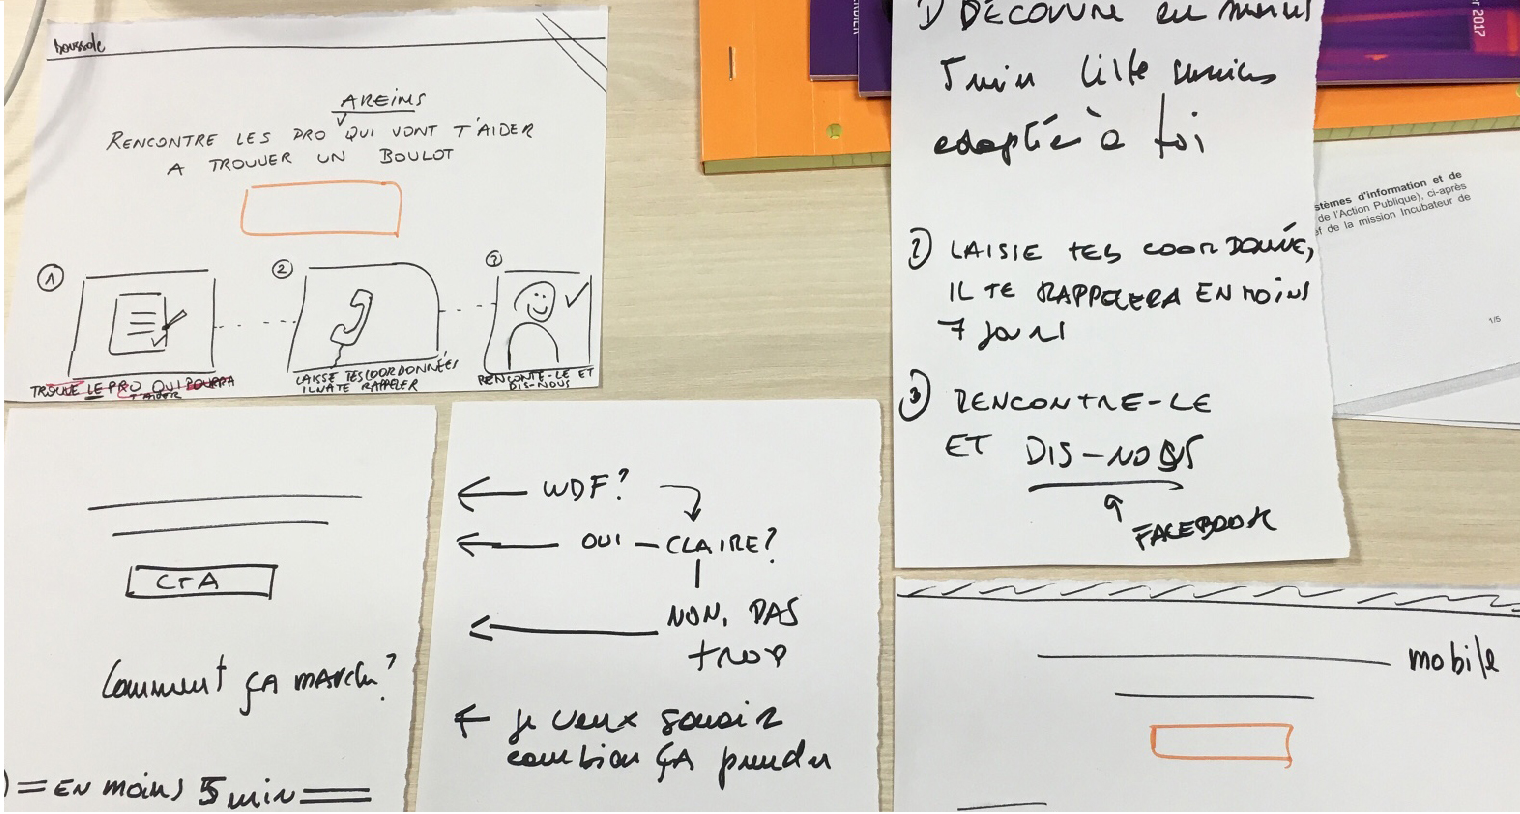 boussole
A REIMS
RENCONTRE LES PRO QUI VONT T'AIDER
A TROUVER UN BOULOT
1
2
3
TROUVE LE PRO QUI POURRA
T'AIDER
LAISSE TES COORDONNÉES
IL VA TE RAPPELER
RENCONTE-LE ET
DIS-NOUS
CTA
Comment ÇA marche?
) = EN moins 5 min
WDF?
OUI – CLAIRE?
NON, PAS
trop
je veux savoir
combien ÇA prendra
1) DÉCOUVRE en moins
5 min liste services
adaptée à toi
2) LAISSE TES COORDONNÉE,
IL TE RAPPELERA EN MOINS
7 jours
3) RENCONTRE-LE
ET DIS-NOUS
FACEBOOK
mobile
2017
stèmes d'information et de
de l'Action Publique), ci-après
ef de la mission Incubateur de
1/5